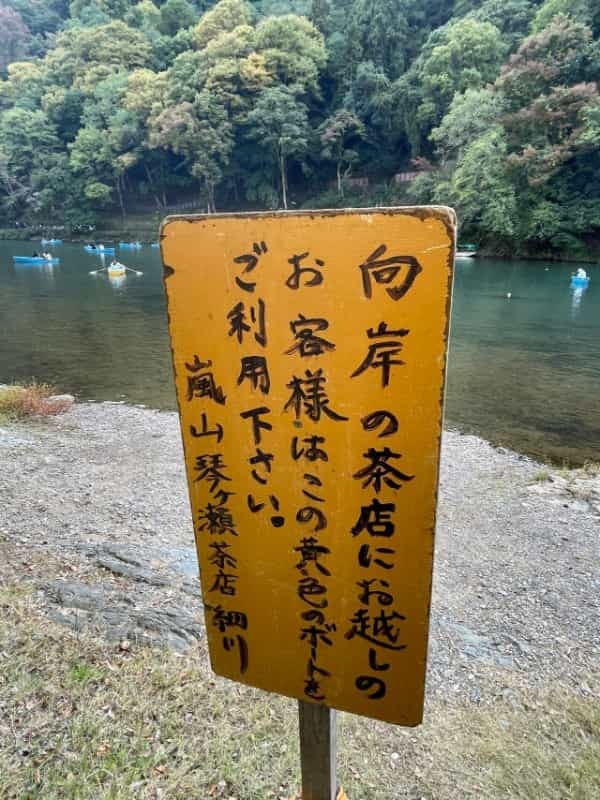 向岸の茶店にお越しの
お客様はこの黄色のボートを
ご利用下さい。
嵐山琴ヶ瀬茶店 細川